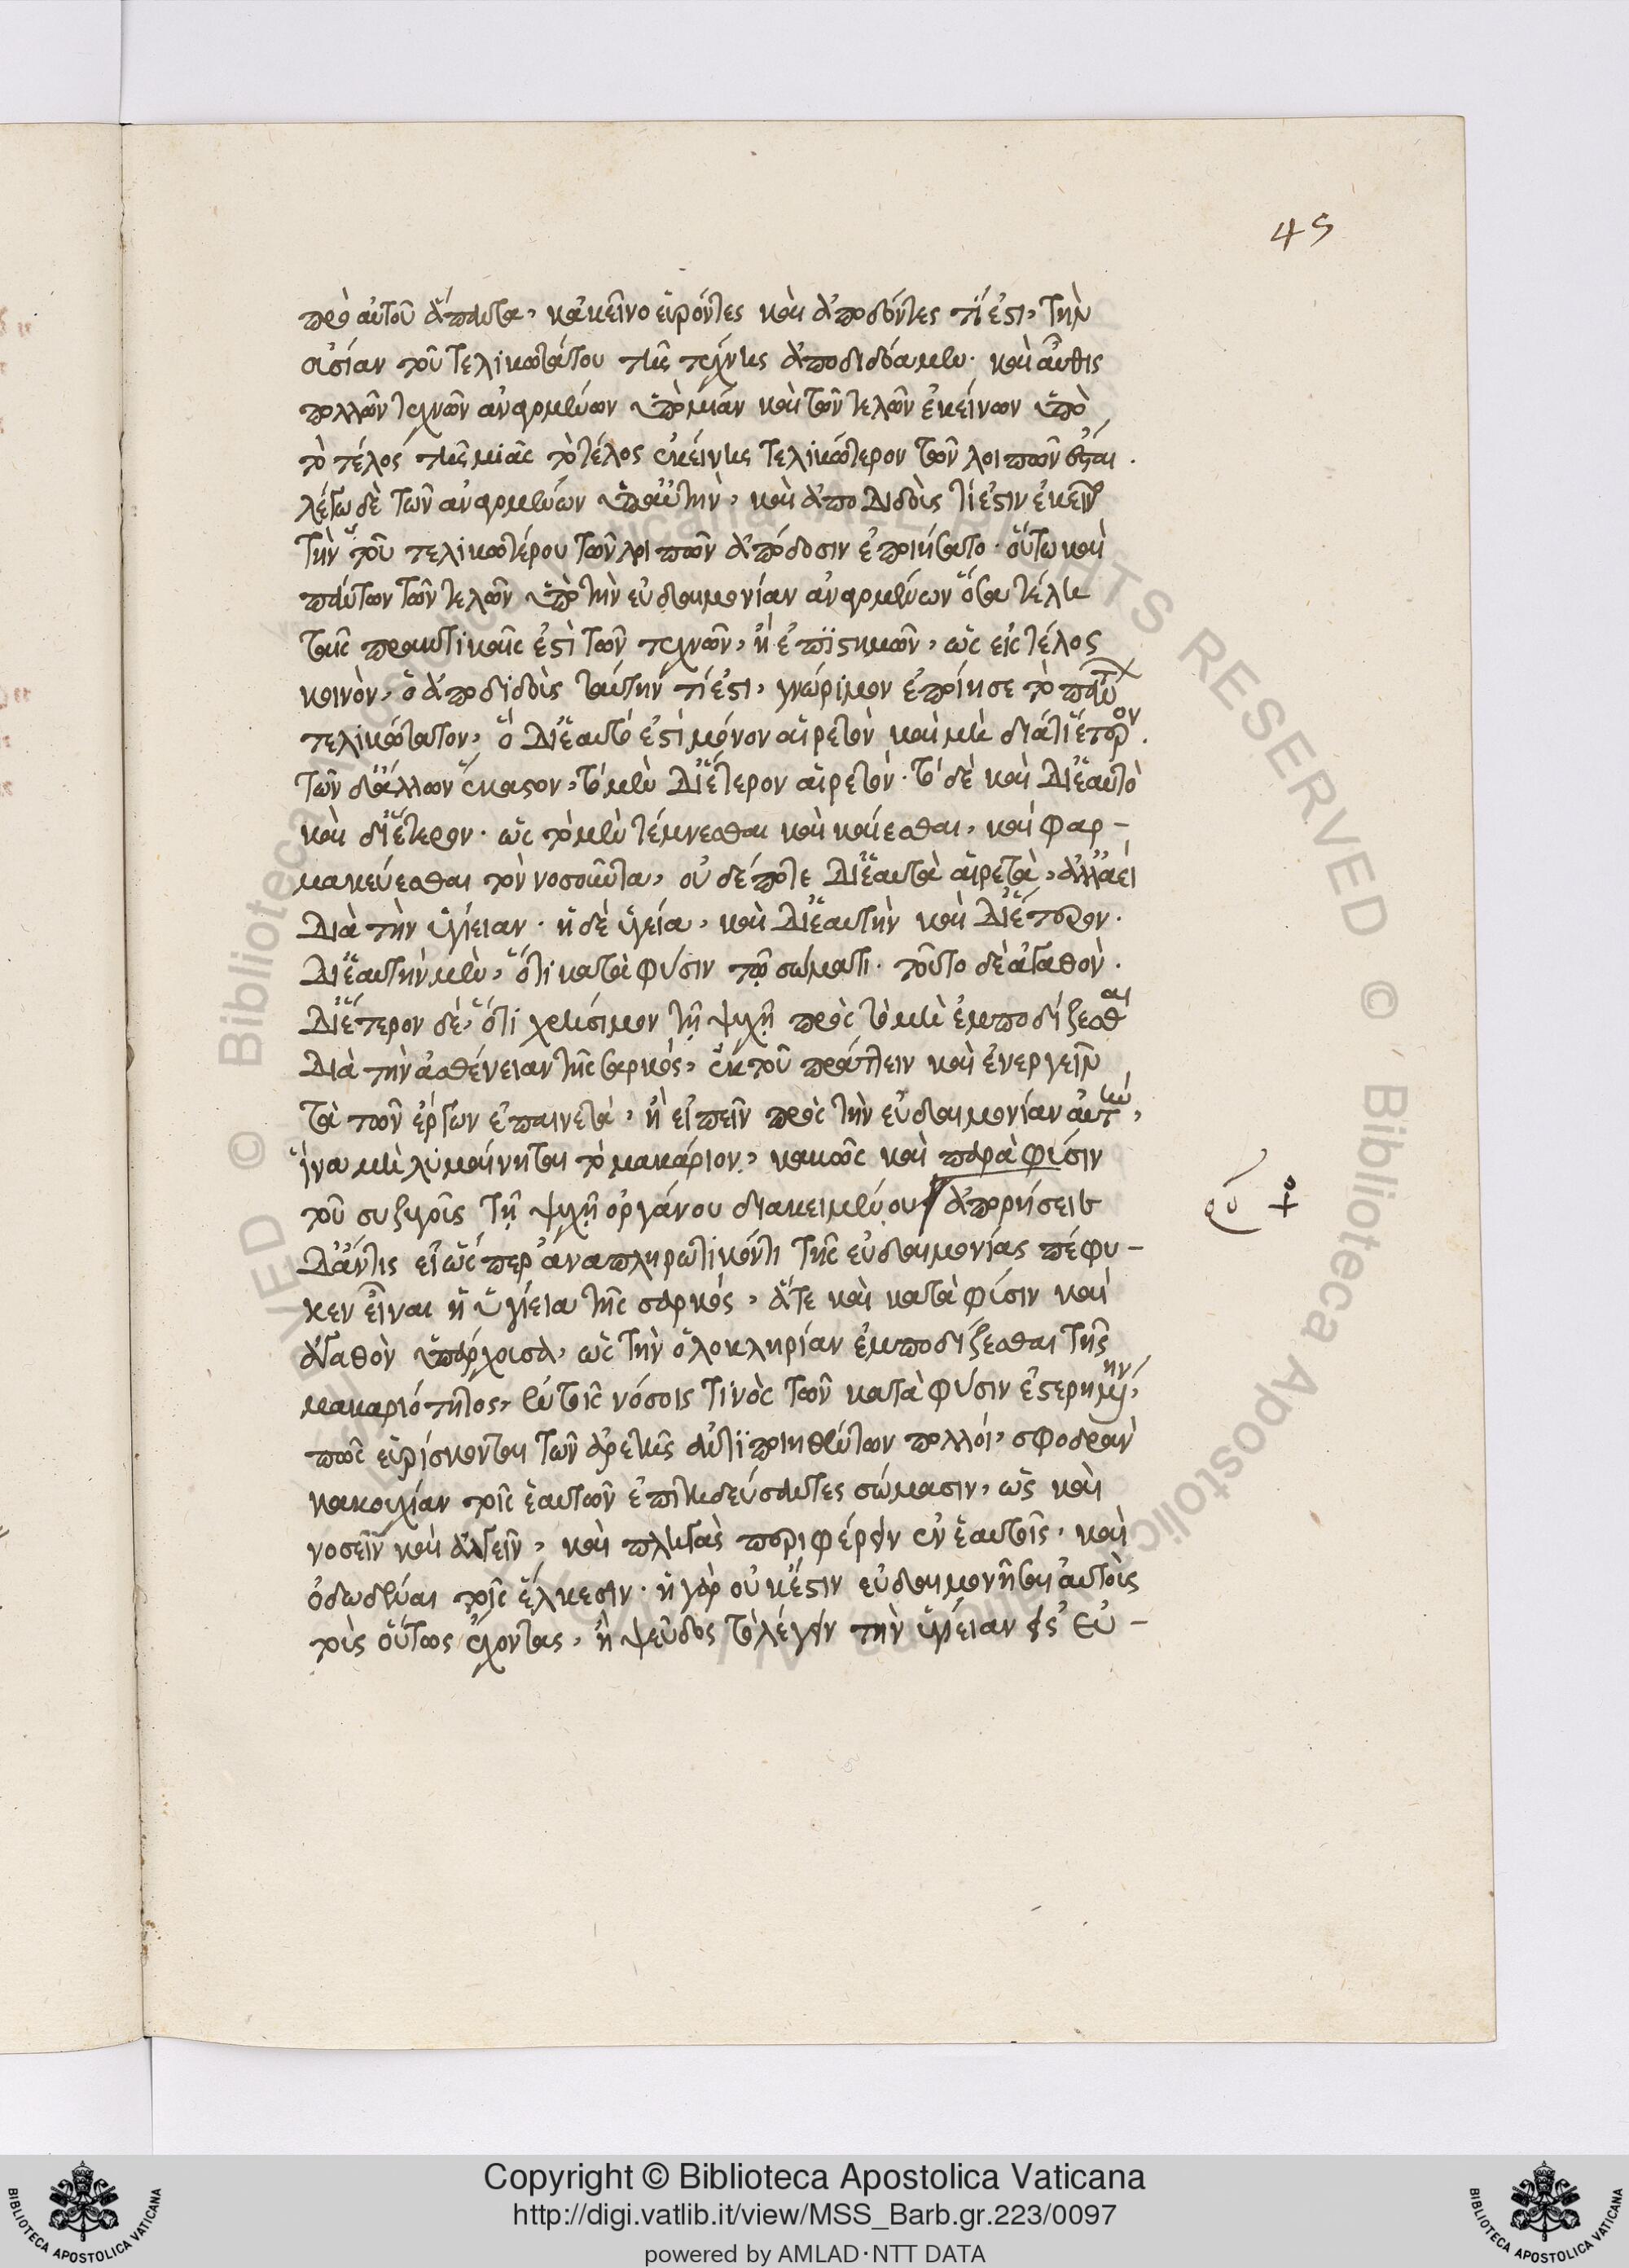 45
πρὸ αὐτοῦ ἅπαντα, κἀκεῖνο εὑρόντες καὶ ἀποδόντες τί ἐστι, τὴν
οὐσίαν τοῦ τελικωτάτου τῆς τέχνης ἀποδιδόαμεν· καὶ αὖθις
πολλῶν τεχνῶν ἀναφομένων ὑπὸ μίαν καὶ τῶν τελῶν ἐκείνων ὑπὸ
τὸ τέλος τῆς μιᾶς τὸ τέλος ἐκείνης τελικώτερον τῶν λοιπῶν
λέγω δὲ τῶν ἀναφομένων ὑπ' αὐτὴν, καὶ ἀποδιδοὺς τί ἐστιν ἐκεῖν
τὴν τοῦ τελικωτέρου τῶν λοιπῶν ἀπόδοσιν ἐποιήσατο· οὕτω καὶ
πάντων τῶν τελῶν ὑπὸ τὴν εὐδαιμονίαν ἀναφομένων ὅσα τέλη
τῆς πρακτικῆς ἐστὶ τῶν τεχνῶν, ἢ ἐπιστημῶν, ὡς εἰς τέλος
κοινὸν, ὁ ἀποδιδοὺς ταύτην τί ἐστι, γνώριμον ἐποίησε τὸ
τελικώτατον, ὃ δι' ἑαυτό ἐστὶ μόνον αἱρετὸν καὶ μὴ διά τι ἕτερον.
τῶν δ' ἄλλων ἕκαστον, τὸ μὲν δι' ἕτερον αἱρετόν· τὸ δὲ καὶ δι' ἑαυτὸ
καὶ δι' ἕτερον· ὡς τὸ μὲν τέμνεσθαι καὶ καίεσθαι, καὶ φαρ-
μακεύεσθαι τὸν νοσοῦντα, οὐδέποτε δι' ἑαυτὰ αἱρετὰ, ἀλλ' ἀεὶ
διὰ τὴν ὑγίειαν· ἡ δὲ ὑγεία, καὶ δι' ἑαυτὴν καὶ δι' ἕτερον·
δι' ἑαυτὴν μὲν, ὅτι κατὰ φύσιν τῷ σώματι· τοῦτο δὲ ἀγαθὸν.
δι' ἕτερον δὲ, ὅτι χρήσιμον τῇ ψυχῇ πρὸς τὸ μὴ ἐμποδίζεσθαι
διὰ τὴν ἀσθένειαν τῆς σαρκὸς, ἐκ τοῦ πράττειν καὶ ἐνεργεῖν
τὰ τῶν ἔργων ἐπαινετά, ἢ εἰπεῖν πρὸς τὴν εὐδαιμονίαν αὐτὴν,
ἵνα μὴ λυμαίνηται τὸ μακάριον, κακῶς καὶ παρὰ φύσιν
τοῦ συζυγοῦς τῇ ψυχῇ ὀργάνου διακειμένου ἀπορήσειε
δ' ἄν τις εἰ ὥσπερ ἀναπληρωτικόν τι τῆς εὐδαιμονίας πέφυ-
κεν εἶναι ἡ ὑγίεια τῆς σαρκός, ἅτε καὶ κατὰ φύσιν καὶ
ἀγαθὸν ὑπάρχουσα, ὡς τὴν ὁλοκληρίαν ἐμποδίζεσθαι τῆς
μακαριότητος, ἐν τοῖς νόσοις τινὸς τῶν κατὰ φύσιν ἐστερημένην,
πῶς εὑρίσκονται τῶν ἀρετῆς ἀντιποιηθέντων πολλοί, σφοδρὰν
κακουχίαν τοῖς ἑαυτῶν ἐπιτηδεύσαντες σώμασιν, ὡς καὶ
νοσεῖν καὶ ἀλγεῖν, καὶ πληγὰς περιφέρειν ἐν ἑαυτοῖς, καὶ
ὀδωδέναι τοῖς ἕλκεσιν· ἢ γὰρ οὐκ ἔστιν εὐδαιμονῆσαι αὐτοὺς
τοὺς οὕτως ἔχοντας, ἢ ψεῦδος τὸ λέγειν τὴν ὑγίειαν εἰς εὐ-
Copyright © Biblioteca Apostolica Vaticana
http://digi.vatlib.it/view/MSS_Barb.gr.223/0097
powered by AMLAD·NTT DATA